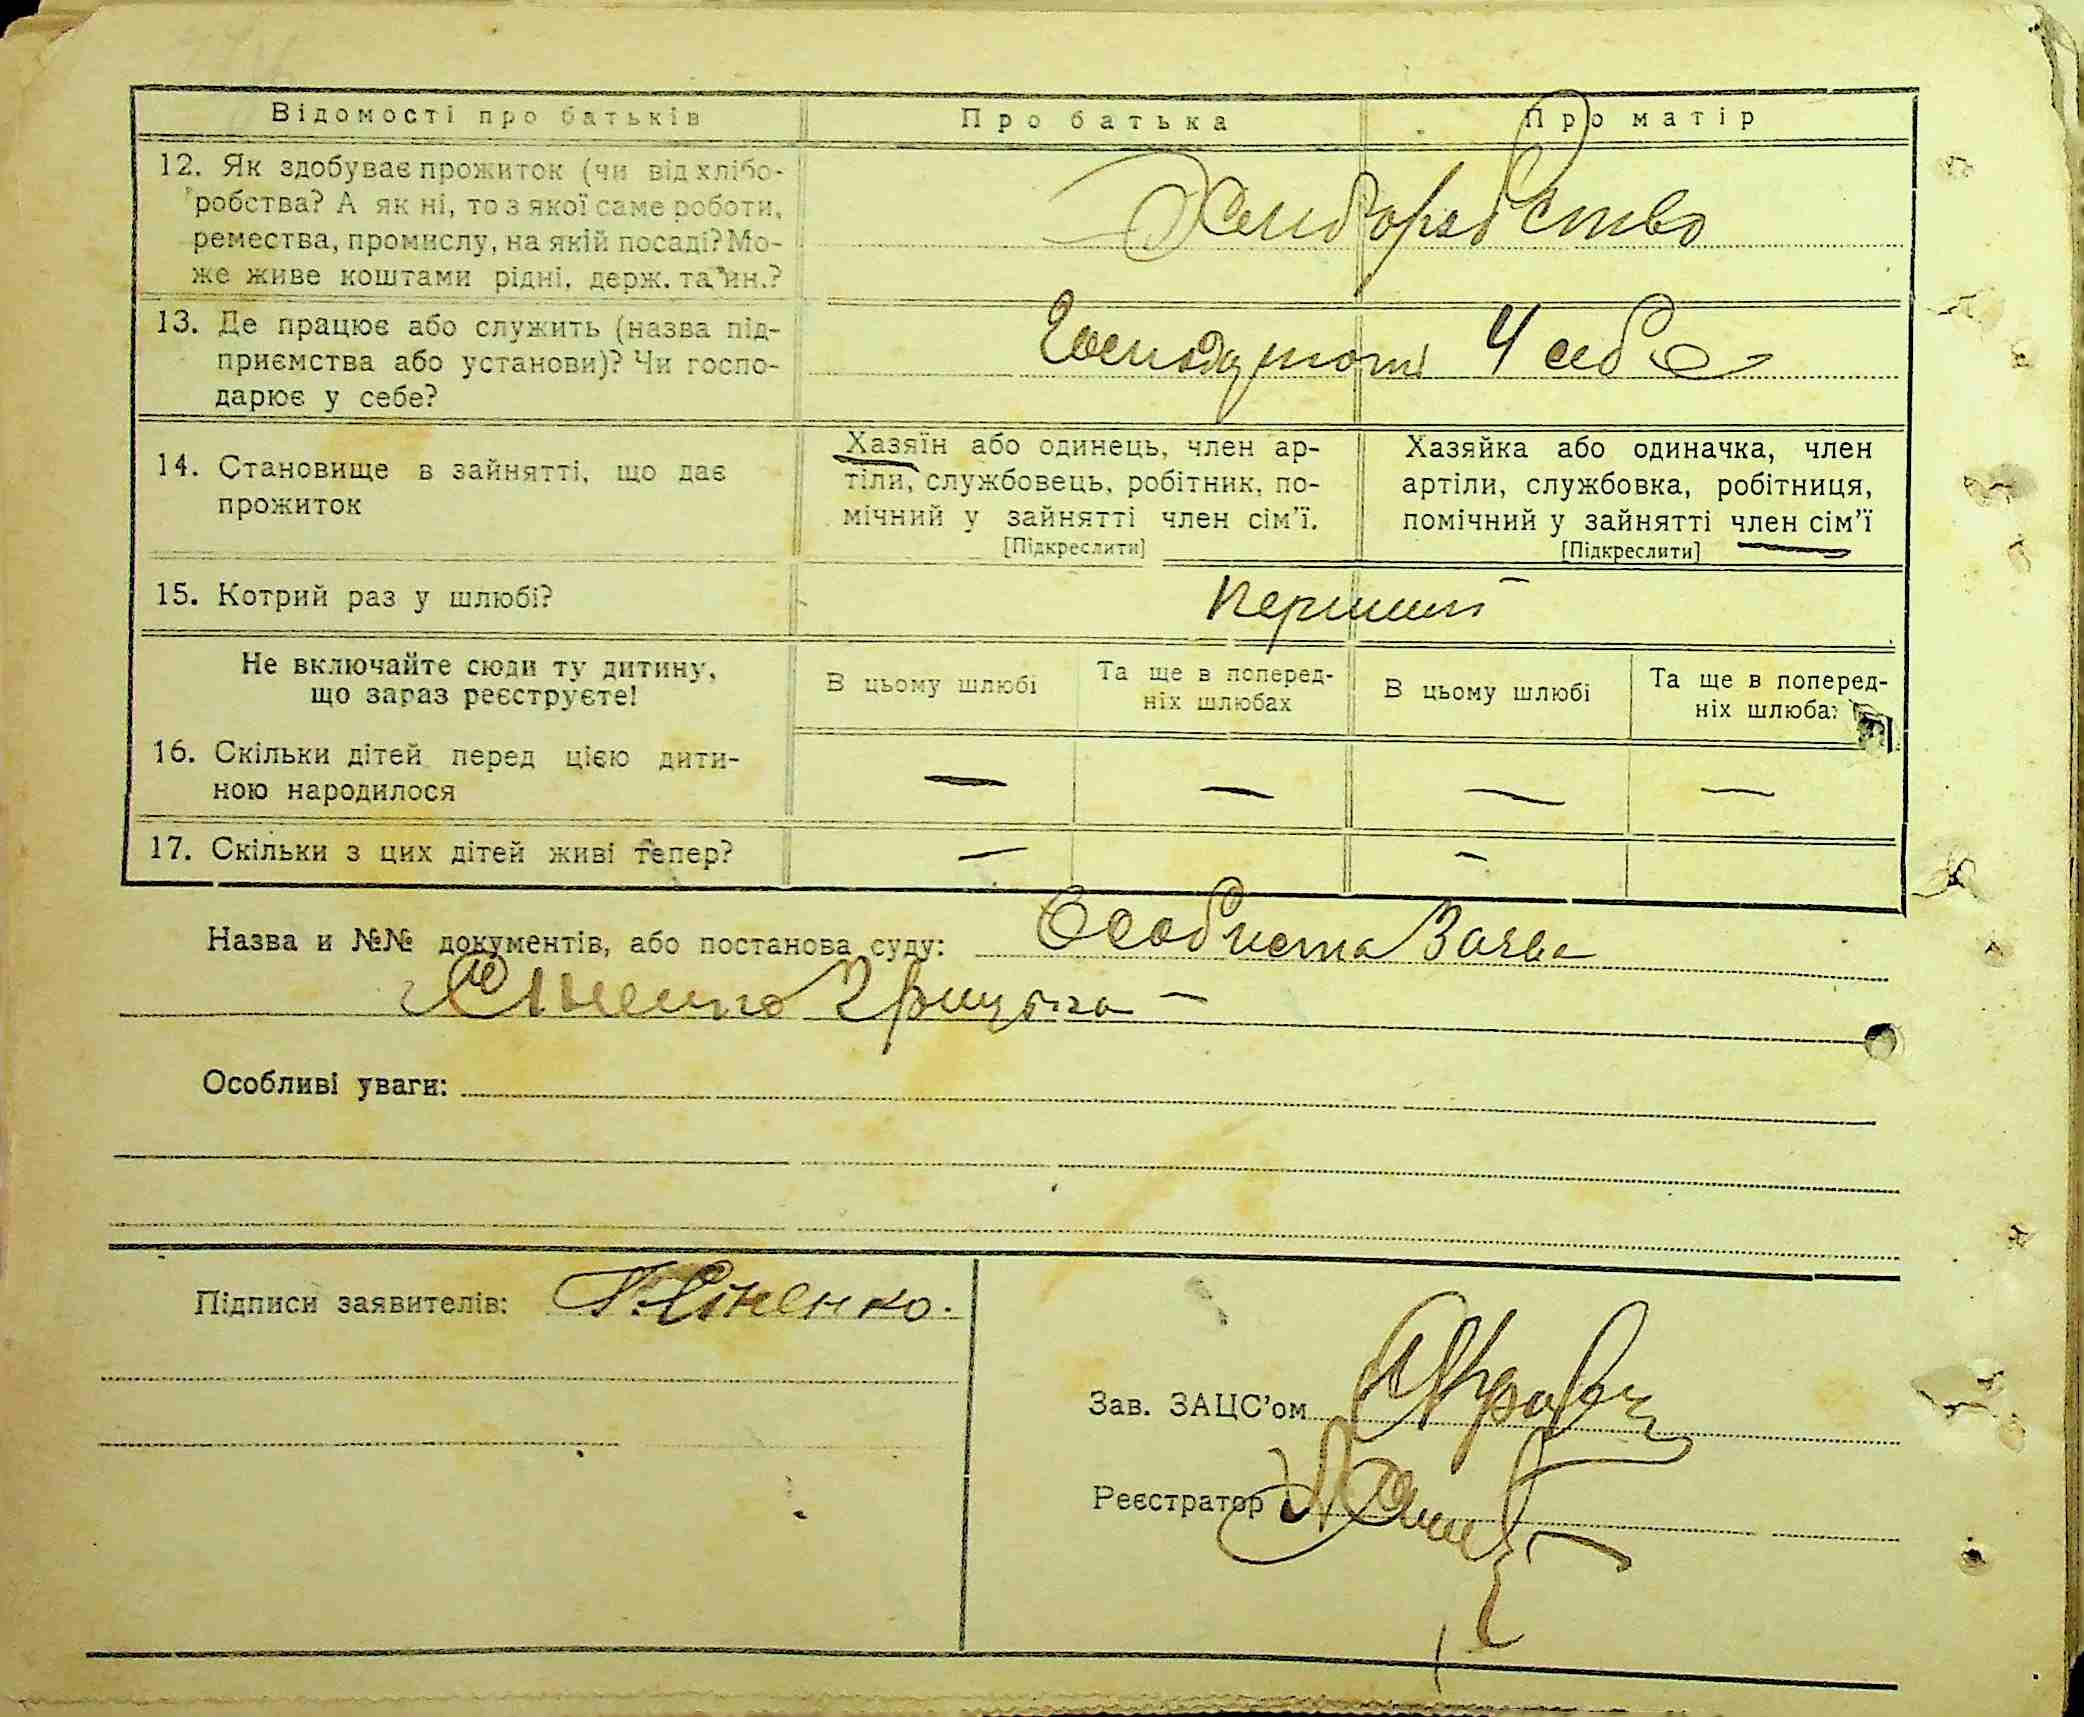 Відомості про батьків
Про батька
Про матір
12. Як здобуває прожиток (чи від хлібо-
робства? А як ні, то з якої саме роботи,
ремества, промислу, на якій посаді? Мо-
же живе коштами рідні, держ. та ин.?
Хліборобство
13. Де працює або служить (назва під-
приємства або установи)? Чи госпо-
дарює у себе?
у себе
14. Становище в зайнятті, що дає
прожиток
Хазяїн або одинець, член ар-
тіли, службовець, робітник, по-
мічний у зайнятті член сім'ї.
[Підкреслити]
Хазяйка або одиначка, член
артіли, службовка, робітниця,
помічний у зайнятті член сім'ї
[Підкреслити]
15. Котрий раз у шлюбі?
Перший
Не включайте сюди ту дитину,
що зараз реєструєте!
В цьому шлюбі
Та ще в поперед-
ніх шлюбах
В цьому шлюбі
Та ще в поперед-
ніх шлюбах
16. Скільки дітей перед цією дити-
ною народилося
— — — —
17. Скільки з цих дітей живі тепер?
— —
Назва и №№ документів, або постанова суду: Особиста Заява
Сіненко Грицька —
Особливі уваги:
Підписи заявителів: Г. Сіненко.
Зав. ЗАЦС'ом
Реєстратор